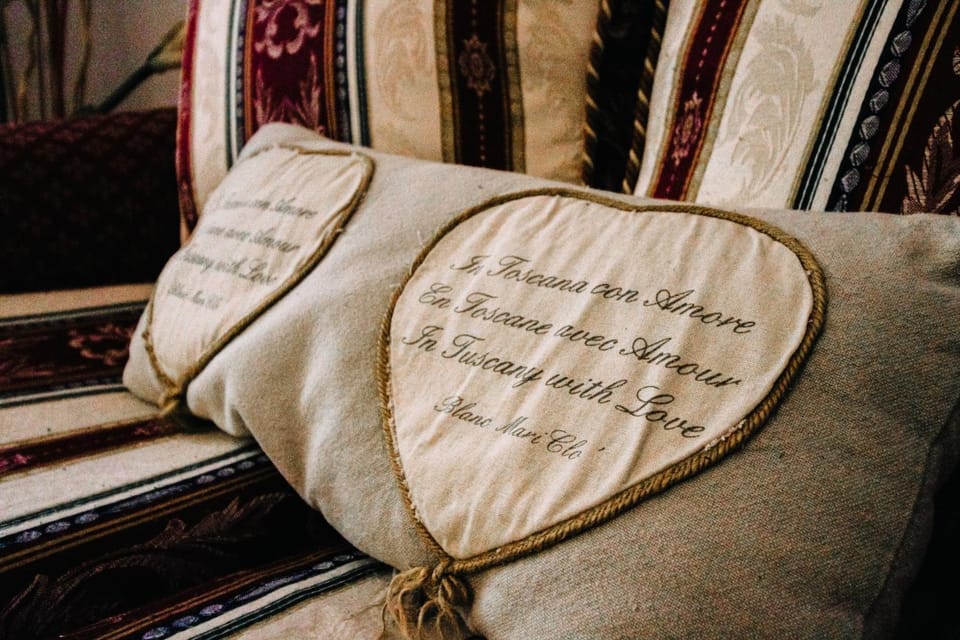 con Amore
avec Amour
with Love
In Toscana con Amore
En Toscane avec Amour
In Tuscany with Love
Blanc Mari Clo'